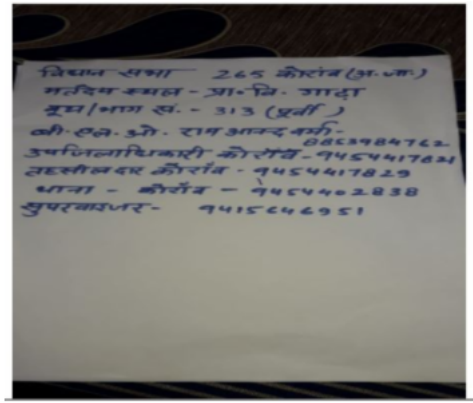 विधान सभा 265 कोरांव (अ.जा.)
मतदेय स्थल - प्रा. वि. गाढ़ा
बूथ/भाग सं. - 313 (पूर्वी)
बी. एल. ओ. राम आनन्द वर्मा -
8853984762
उपजिलाधिकारी कोराँव - 9454417821
तहसीलदार कोराँव - 9454417829
थाना - कोराँव - 9454402838
सुपरवाइजर - 9415646951